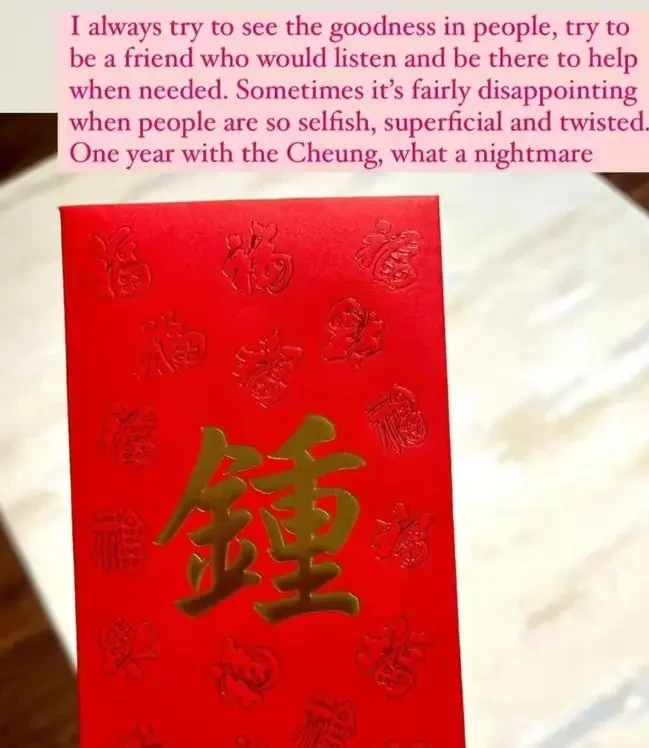 I always try to see the goodness in people, try to
be a friend who would listen and be there to help
when needed. Sometimes it’s fairly disappointing
when people are so selfish, superficial and twisted.
One year with the Cheung, what a nightmare
福 福 福
福 福 福
福 福
鍾
福 福
福 福 福
福